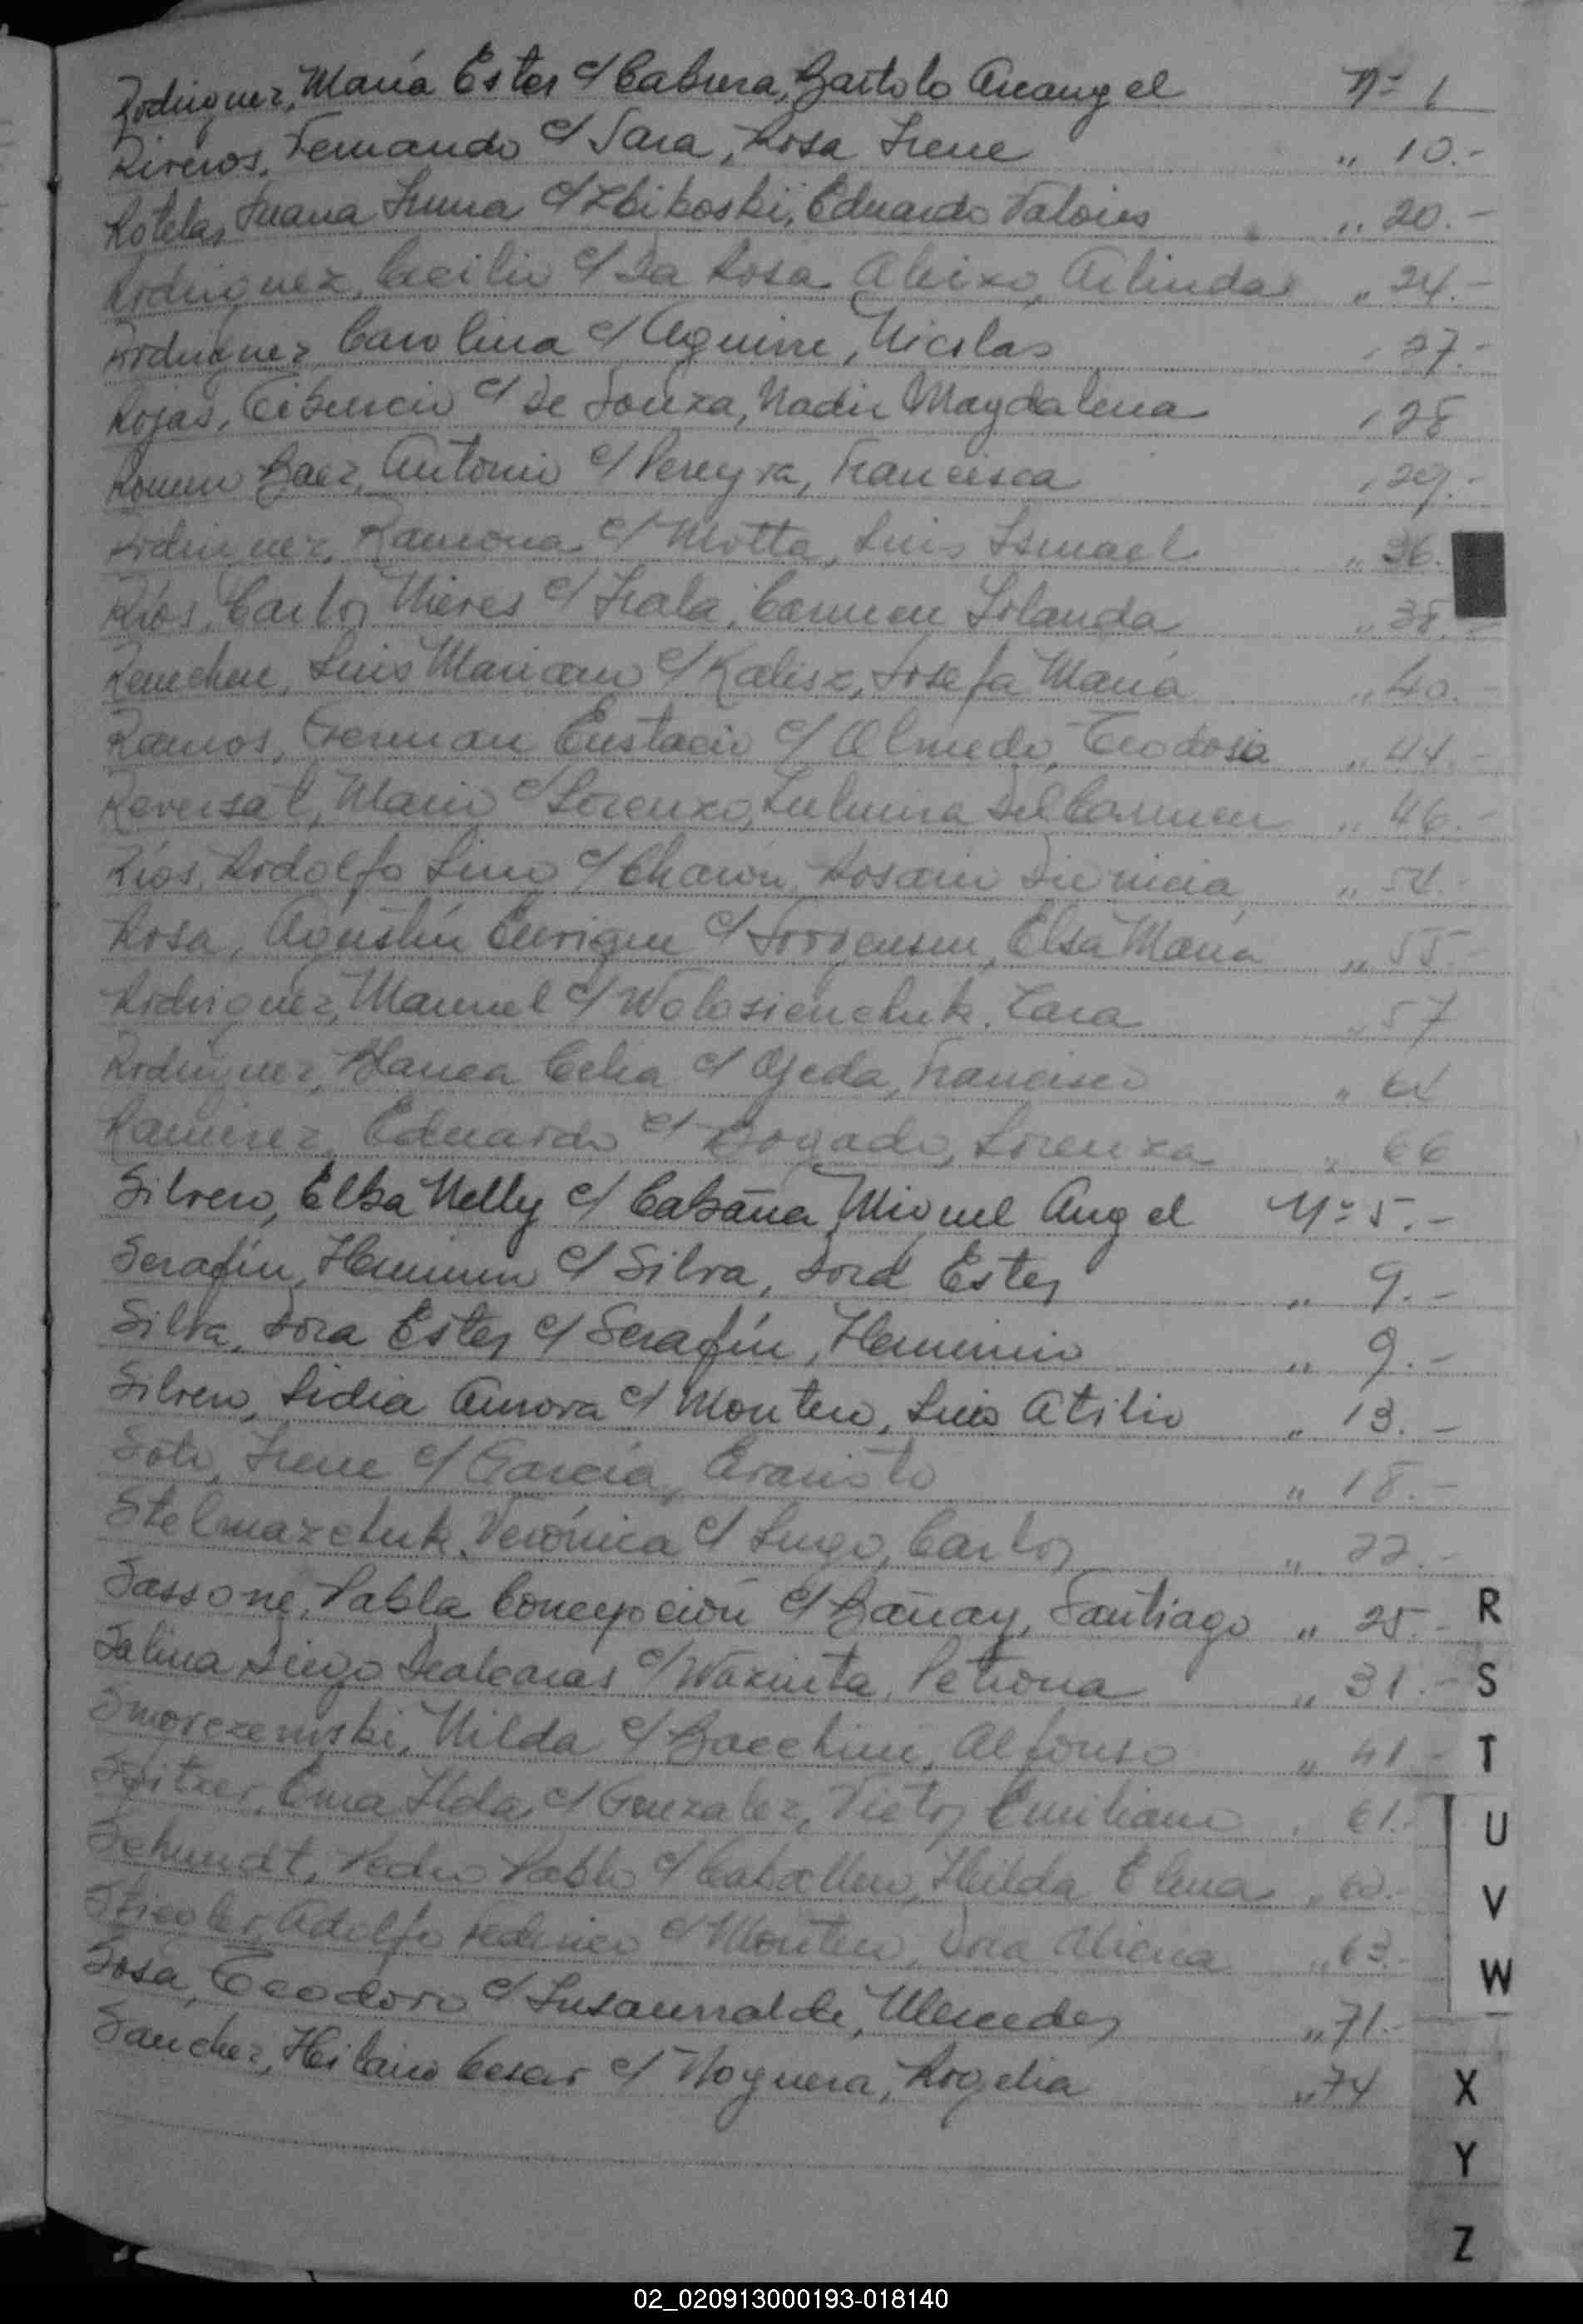 Rodriguez, María Ester c/ Cabrera, Bartolo Arcangel Nº 1
Riveros, Fernando c/ Jara, Rosa Irene „ 10.-
Rotela, Juana Irma c/ Zbikoski, Eduardo Valois „ 20.-
Rodriguez, Cecilio c/ Da Rosa Aleixo, Arlinda „ 24.-
Rodriguez Carolina c/ Aguirre, Nicolas „ 27.-
Rojas, Tiburcio c/ De Souza, Nadir Magdalena „ 28
Romero Baez, Antonio c/ Pereyra, Francisca „ 29.-
Rodriguez, Ramona c/ Motta, Luis Ismael „ 36.
Ríos, Carlos Nieres c/ Irala, Carmen Iolanda „ 38.-
Luis Mariano c/ Kalisz, Josefa María „ 40.-
Ramos, German Eustacio c/ Olmedo, Teodosia „ 44.-
Reversat, Mario c/ Lorenzo, Del Carmen „ 46.-
Ríos, Rodolfo Lino c/ Rosario Dionicia „ 54.-
Rosa, Agustín Enrique c/ Jorgensen, Elsa María „ 55.-
Rodriguez, Manuel c/ Wolosienchuk, Zara „ 57
Rodriguez, Blanca Celia c/ Ojeda, Francisco „ 64
Ramirez, Eduardo c/ Bogado, Lorenza „ 66
Silvero, Elba Nelly c/ Cabaña, Miguel Angel Nº 5.-
Serafín, Herminio c/ Silva, Dora Ester „ 9.-
Silva, Dora Ester c/ Serafín, Herminio „ 9.-
Silvero, Lidia Aurora c/ Montero, Luis Atilio „ 13.-
Soto, Irene c/ García, Evaristo „ 18.-
Stelmazchuk, Verónica c/ Lugo, Carlos „ 22.-
Sassone, Pabla Concepción c/ Bañay, Santiago „ 25.-
Salina Diego c/ Petrona „ 31.-
Nilda c/ Bacchini, Alfonso „ 41.-
Spitzer, Ema Ilda c/ Gonzalez, Victor Emiliano „ 61.-
Schmidt, Pedro Pablo c/ Caballero, Hilda Elena „ 60.-
Stiegler, Adolfo Federico c/ Montero, Dora Alicia „ 63.-
Sosa, Teodoro c/ Mercedes „ 71.-
Sanchez, Hilario Cesar c/ Noguera, Rogelia „ 74
R
S
T
U
V
W
X
Y
Z
02_020913000193-018140